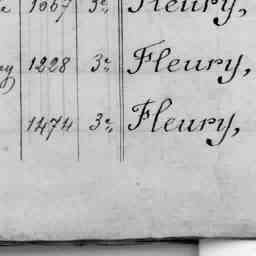 1067 3e Fleury,
1228 3e Fleury,
1474 3e Fleury,